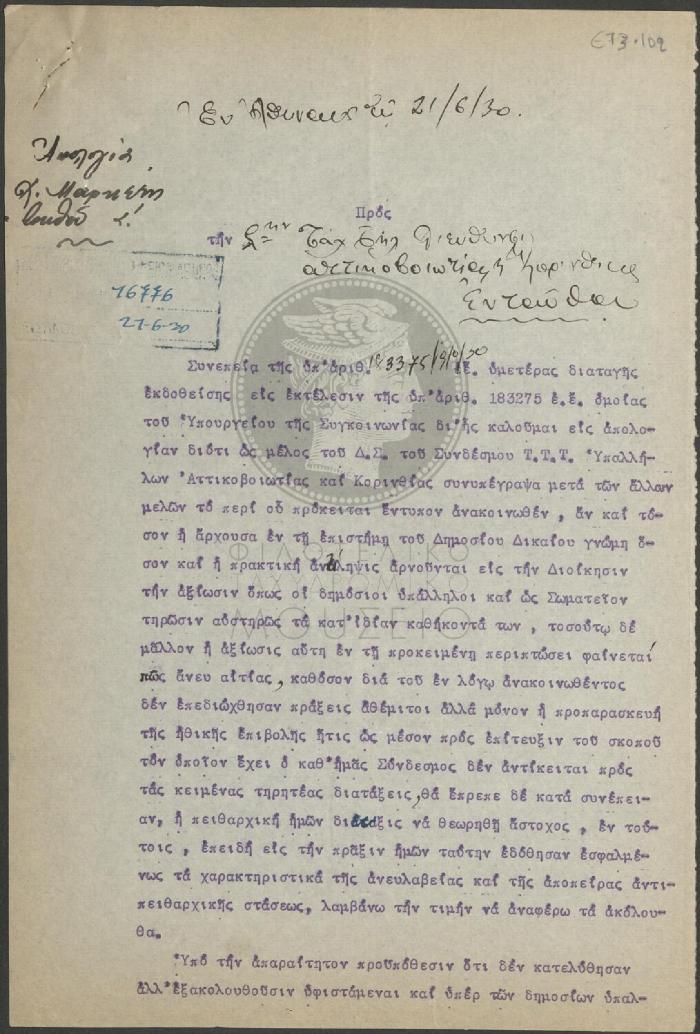 673.102
Ἐν Ἀθήναις τῇ 21/6/30.
Ἀπολογία
Πρός
τήν Τηλ Διεύθυνσιν
Ἀττικοβοιωτίας Κορινθίας
Ἐνταῦθα
16776
21-6-30
Συνεπείᾳ τῆς ὑπ'ἀριθ. 3375/ ἐ.ἔ. ὑμετέρας διαταγῆς
ἐκδοθείσης εἰς ἐκτέλεσιν τῆς ὑπ'ἀριθ. 183275 ἐ.ἔ. ὁμοίας
τοῦ Ὑπουργείου τῆς Συγκοινωνίας δι'ἧς καλοῦμαι εἰς ἀπολο-
γίαν διότι ὡς μέλος τοῦ Δ.Σ. τοῦ Συνδέσμου Τ.Τ.Τ. Ὑπαλλή-
λων Ἀττικοβοιωτίας καί Κορινθίας συνυπέγραψα μετά τῶν ἄλλων
μελῶν τό περί οὗ πρόκειται ἔντυπον ἀνακοινωθέν, ἄν καί τό-
σον ἡ ἄρχουσα ἐν τῇ ἐπιστήμῃ τοῦ Δημοσίου Δικαίου γνώμη ὅ-
σον καί ἡ πρακτική ἀντίληψις ἀρνοῦνται εἰς τήν Διοίκησιν
τήν ἀξίωσιν ὅπως οἱ δημόσιοι ὑπάλληλοι καί ὡς Σωματεῖον
τηρῶσιν αὐστηρῶς τά κατ'ἰδίαν καθήκοντά των, τοσούτῳ δέ
μᾶλλον ἡ ἀξίωσις αὕτη ἐν τῇ προκειμένῃ περιπτώσει φαίνεταί
πως ἄνευ αἰτίας, καθόσον διά τοῦ ἐν λόγῳ ἀνακοινωθέντος
δέν ἐπεδιώχθησαν πράξεις ἀθέμιτοι ἀλλά μόνον ἡ προπαρασκευή
τῆς ἠθικῆς ἐπιβολῆς ἥτις ὡς μέσον πρός ἐπίτευξιν τοῦ σκοποῦ
τόν ὁποῖον ἔχει ὁ καθ'ἡμᾶς Σύνδεσμος δέν ἀντίκειται πρός
τάς κειμένας τηρητέας διατάξεις, θά ἔπρεπε δέ κατά συνέπει-
αν, ἡ πειθαρχική ἡμῶν δίωξις νά θεωρηθῇ ἄστοχος, ἐν τού-
τοις, ἐπειδή εἰς τήν πρᾶξιν ἡμῶν ταύτην ἐδόθησαν ἐσφαλμέ-
νως τά χαρακτηριστικά τῆς ἀνευλαβείας καί τῆς ἀποπείρας ἀντι-
πειθαρχικῆς στάσεως, λαμβάνω τήν τιμήν νά ἀναφέρω τά ἀκόλου-
θα.
Ὑπό τήν ἀπαραίτητον προϋπόθεσιν ὅτι δέν κατελύθησαν
ἀλλ'ἐξακολουθοῦσιν ὑφιστάμεναι καί ὑπέρ τῶν δημοσίων ὑπαλ-
ΦΙΛΟΤΕΛΙΚΟ
ΤΑΧΥΔΡΟΜΙΚΟ
ΜΟΥΣΕΙΟ